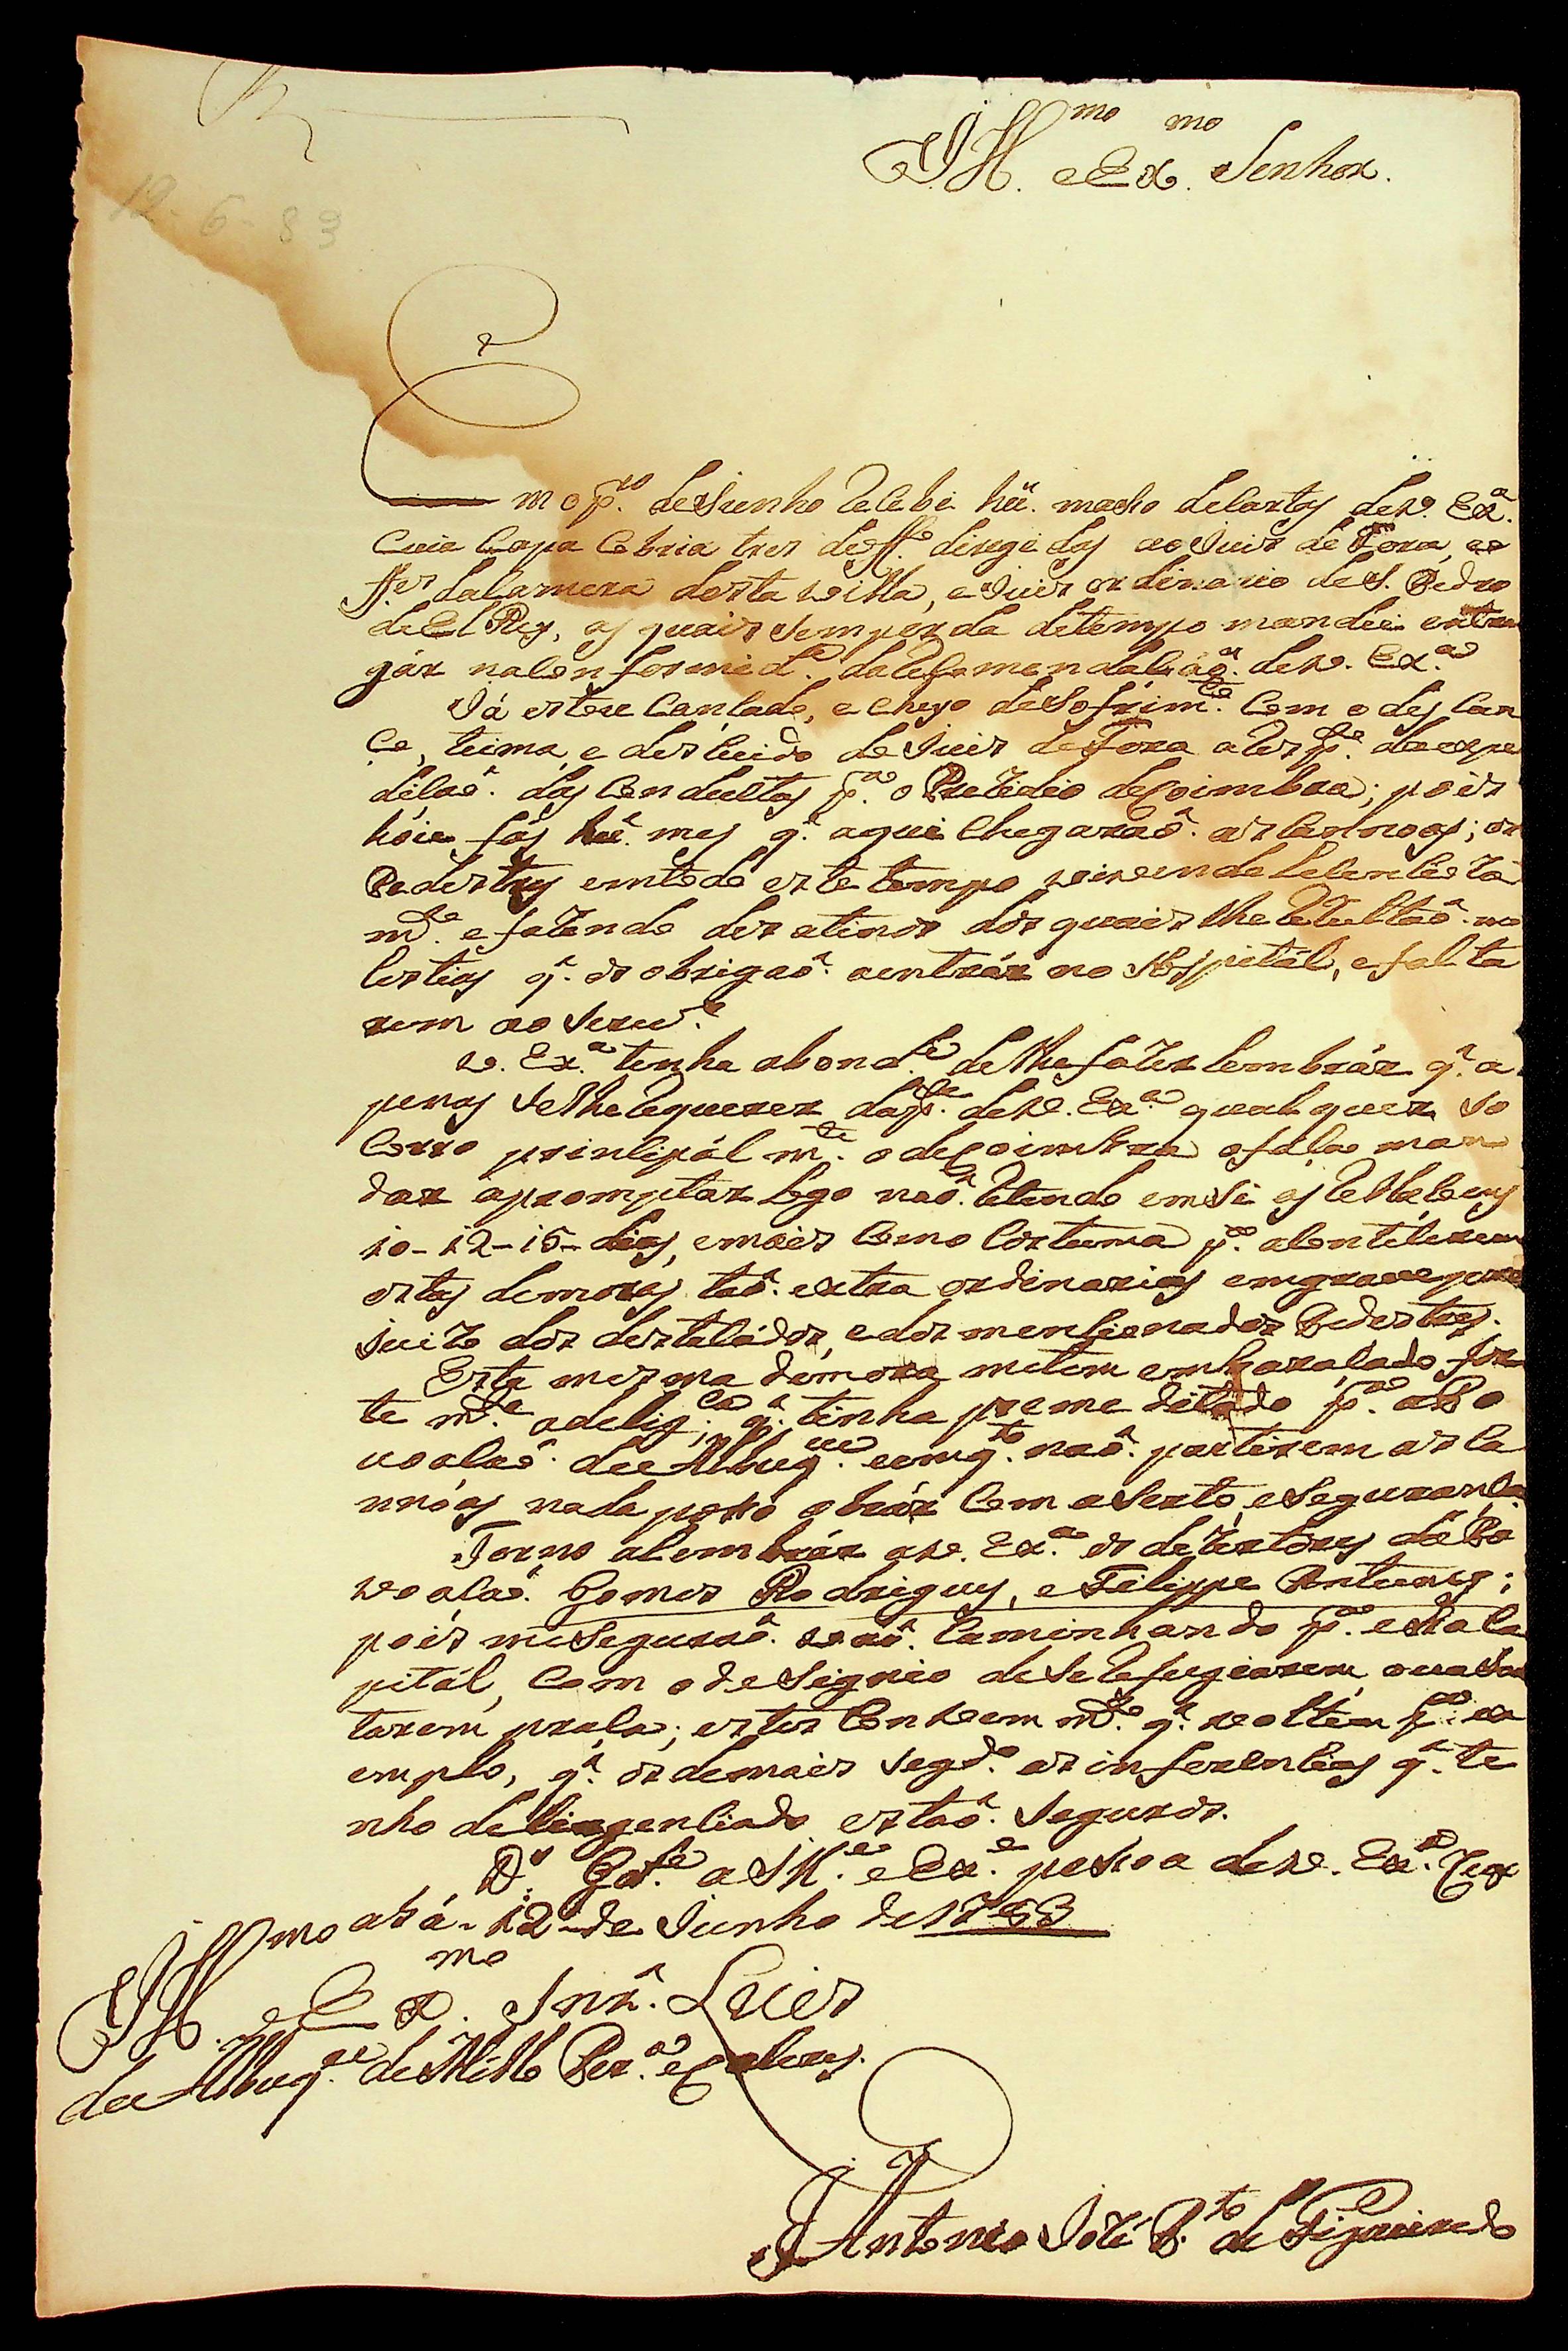 Ill.mo e Ex.mo Senhor.
12-6-83
Em o p.ro de Junho recebi hũ. masso de cartas de V. Ex.a
cuia capa cobria tres de off.o dirigidas ao Juis de Fora, ao
ff.es da Camera desta Villa, e Juis ordinario de S. Pedro
de El Rey, as quais sem perda de tempo mandei entre
gár na conformid.e da recomendaçaõ. de V. Ex.a
Já estou cançado, e cheyo de sofrim.to com o descan
ço, teima, e descuido do Juis de Fora a resp.to da expe
diçaõ. das conductas p.a o Prezidio de Coimbra; pois
hóie fás hũ. mes q̃. aqui chegaraõ. as cannoas; os
Pedestres em todo este tempo vivendo licencioza
m.te e fazendo desatinos dos quais lhe rezultaõ. mo
lestias q̃. os obrigaõ. a entrár no Hospitál, e falta
rem ao serv.o
V. Ex.a tenha a bond.e de lhe fazer lembrár q̃. a
penas se lhe requerer da p.te de V. Ex.a qualquer so
corro principál m.te o de Coimbra o faça man
dar apromptar logo naõ. retendo em si as rellaçoens
10-12-15-dias, e mais como costuma p.a acontecerem
estas demoras taõ. extra ordinarias em grave pre
juizo dos destacádos, e dos mencionados Pedestres.
Esta mesma demora me tem embaraçado for
te m.te a delig.ca q̃. tinha premeditado p.a a Po
voaçaõ. de Albuq.e e em q.to naõ. partirem as ca
nnóas nada posso obrár com aserto, e segurança.
Torno a lembrár a V. Ex.a os dezertores da Po
voaçaõ. Gomes Rodrigues, e Felippe Antunes;
pois me seguraõ. vaõ. caminhando p.a essa ca
pitál, com o designio de se refugiarem, ou asen
tarem praça; estes convem m.to q̃. voltem p.a ex
emplo, q̃. os demais seg.do as inferencias q̃. te
nho deligenciado estaõ. seguros.
D.s G.de a Ill.e e Ex.e pessoa de V. Ex.a Cuy
abá. 12 de Junho de 1783
Ill.mo e Ex.mo Snr̃. Luis
de Albuq.e de Mello Per.a e Caceres.
Antonio Jozé P.to de Figueiredo